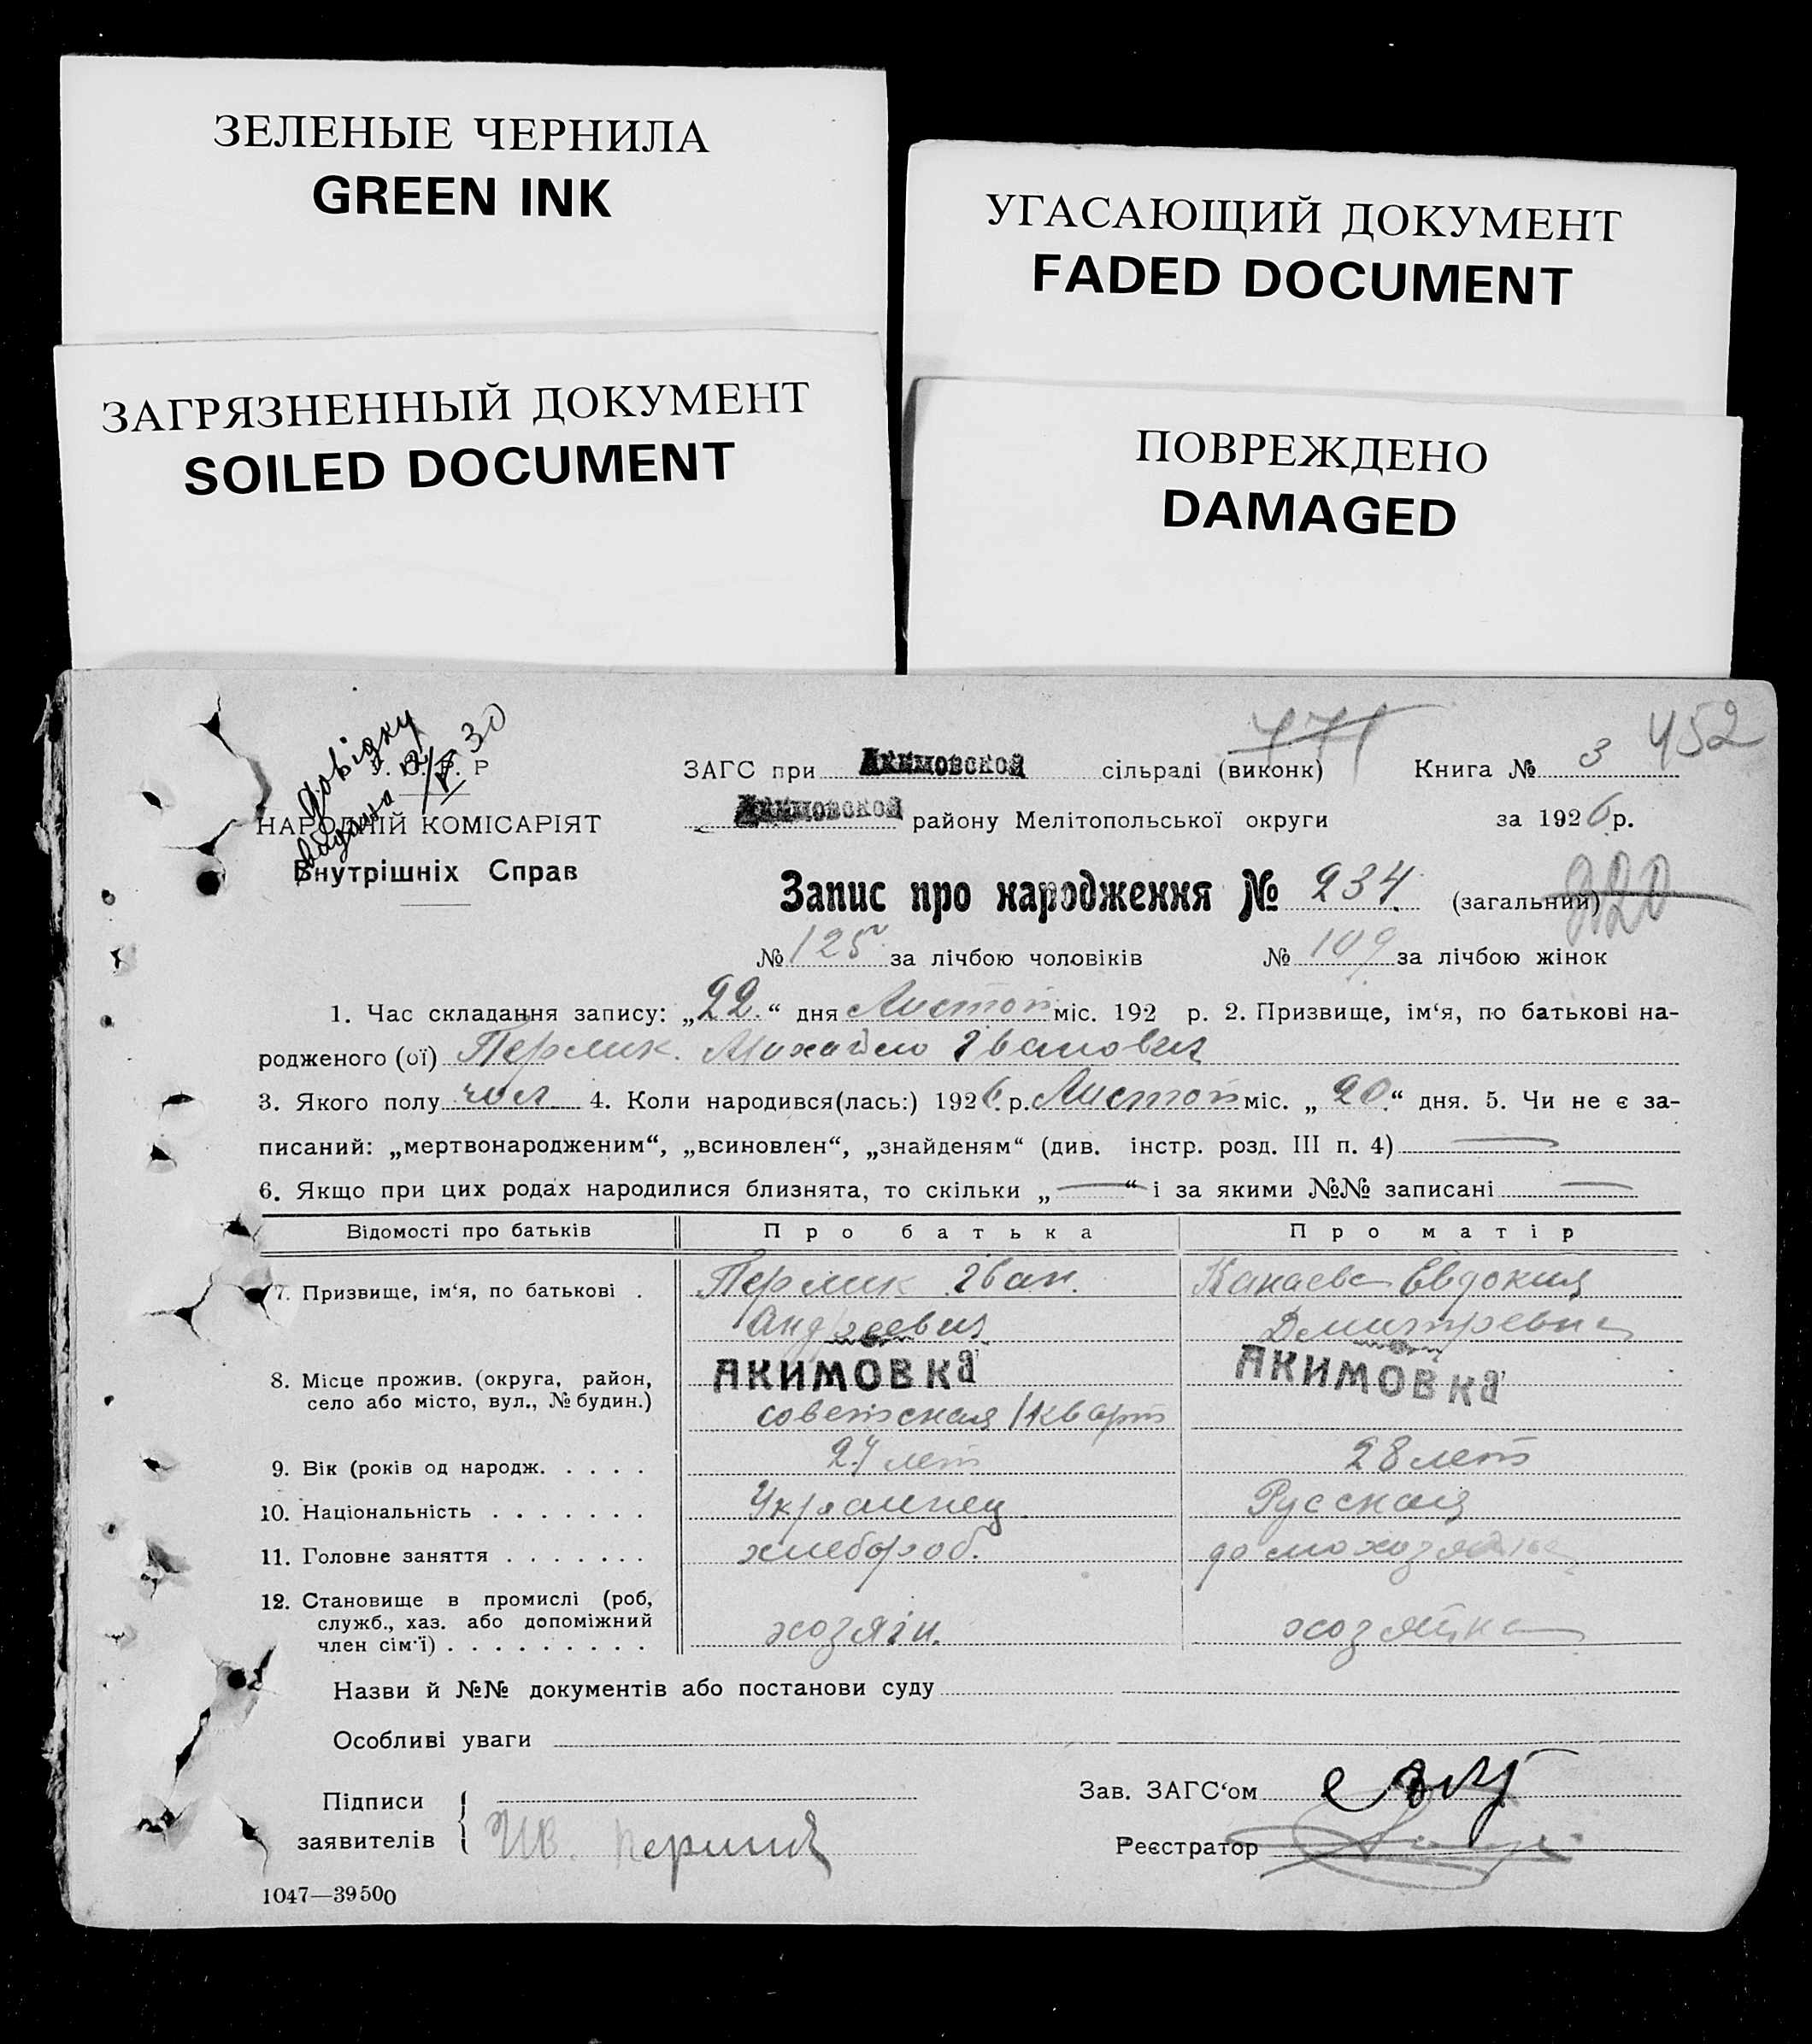 ЗЕЛЕНЫЕ ЧЕРНИЛА
GREEN INK
УГАСАЮЩИЙ ДОКУМЕНТ
FADED DOCUMENT
ЗАГРЯЗНЕННЫЙ ДОКУМЕНТ
SOILED DOCUMENT
ПОВРЕЖДЕНО
DAMAGED
452
довідку
видано
30
ЗАГС при Акимовской сільраді (виконк) Книга № 3
НАРОДНІЙ КОМІСАРІЯТ
Внутрішніх Справ
Акимовской району Мелітопольської округи за 1926 р.
Запис про народження № 234 (загальний) 220
№ 125 за лічбою чоловіків № 109 за лічбою жінок
1. Час складання запису: „22“ дня Листоп міс. 192 р. 2. Призвище, ім‘я, по батькові на-
родженого (ої) Перлик Михайло Іванович
3. Якого полу чол 4. Коли народився(лась:) 1926 р. Листоп міс. „20“ дня. 5. Чи не є за-
писаний: „мертвонародженим“, „всиновлен“, „знайденям“ (див. інстр. розд. III п. 4)
6. Якщо при цих родах народилися близнята, то скільки „—“ і за якими №№ записані —
Відомості про батьків Про батька Про матір
7. Призвище, ім‘я, по батькові . Перлик Іван Канаева Евдокия
Андреевич Дмитревна
8. Місце прожив. (округа, район,
село або місто, вул., № будин.)
АКИМОВКа АКИМОВКа
советская 1 кварт
9. Вік (років од народж. . . . . 27 лет 28 лет
10. Національність . . . . . . . Украинец Русская
11. Головне заняття . . . . . . . хлебороб. домохозяйка
12. Становище в промислі (роб,
служб., хаз. або допоміжний
член сім‘ї) . . . . . . . . . хозяін. хозяйка
Назви й №№ документів або постанови суду
Особливі уваги
Підписи
заявителів Ив. Перлик
Зав. ЗАГС‘ом
Реєстратор
1047—39500